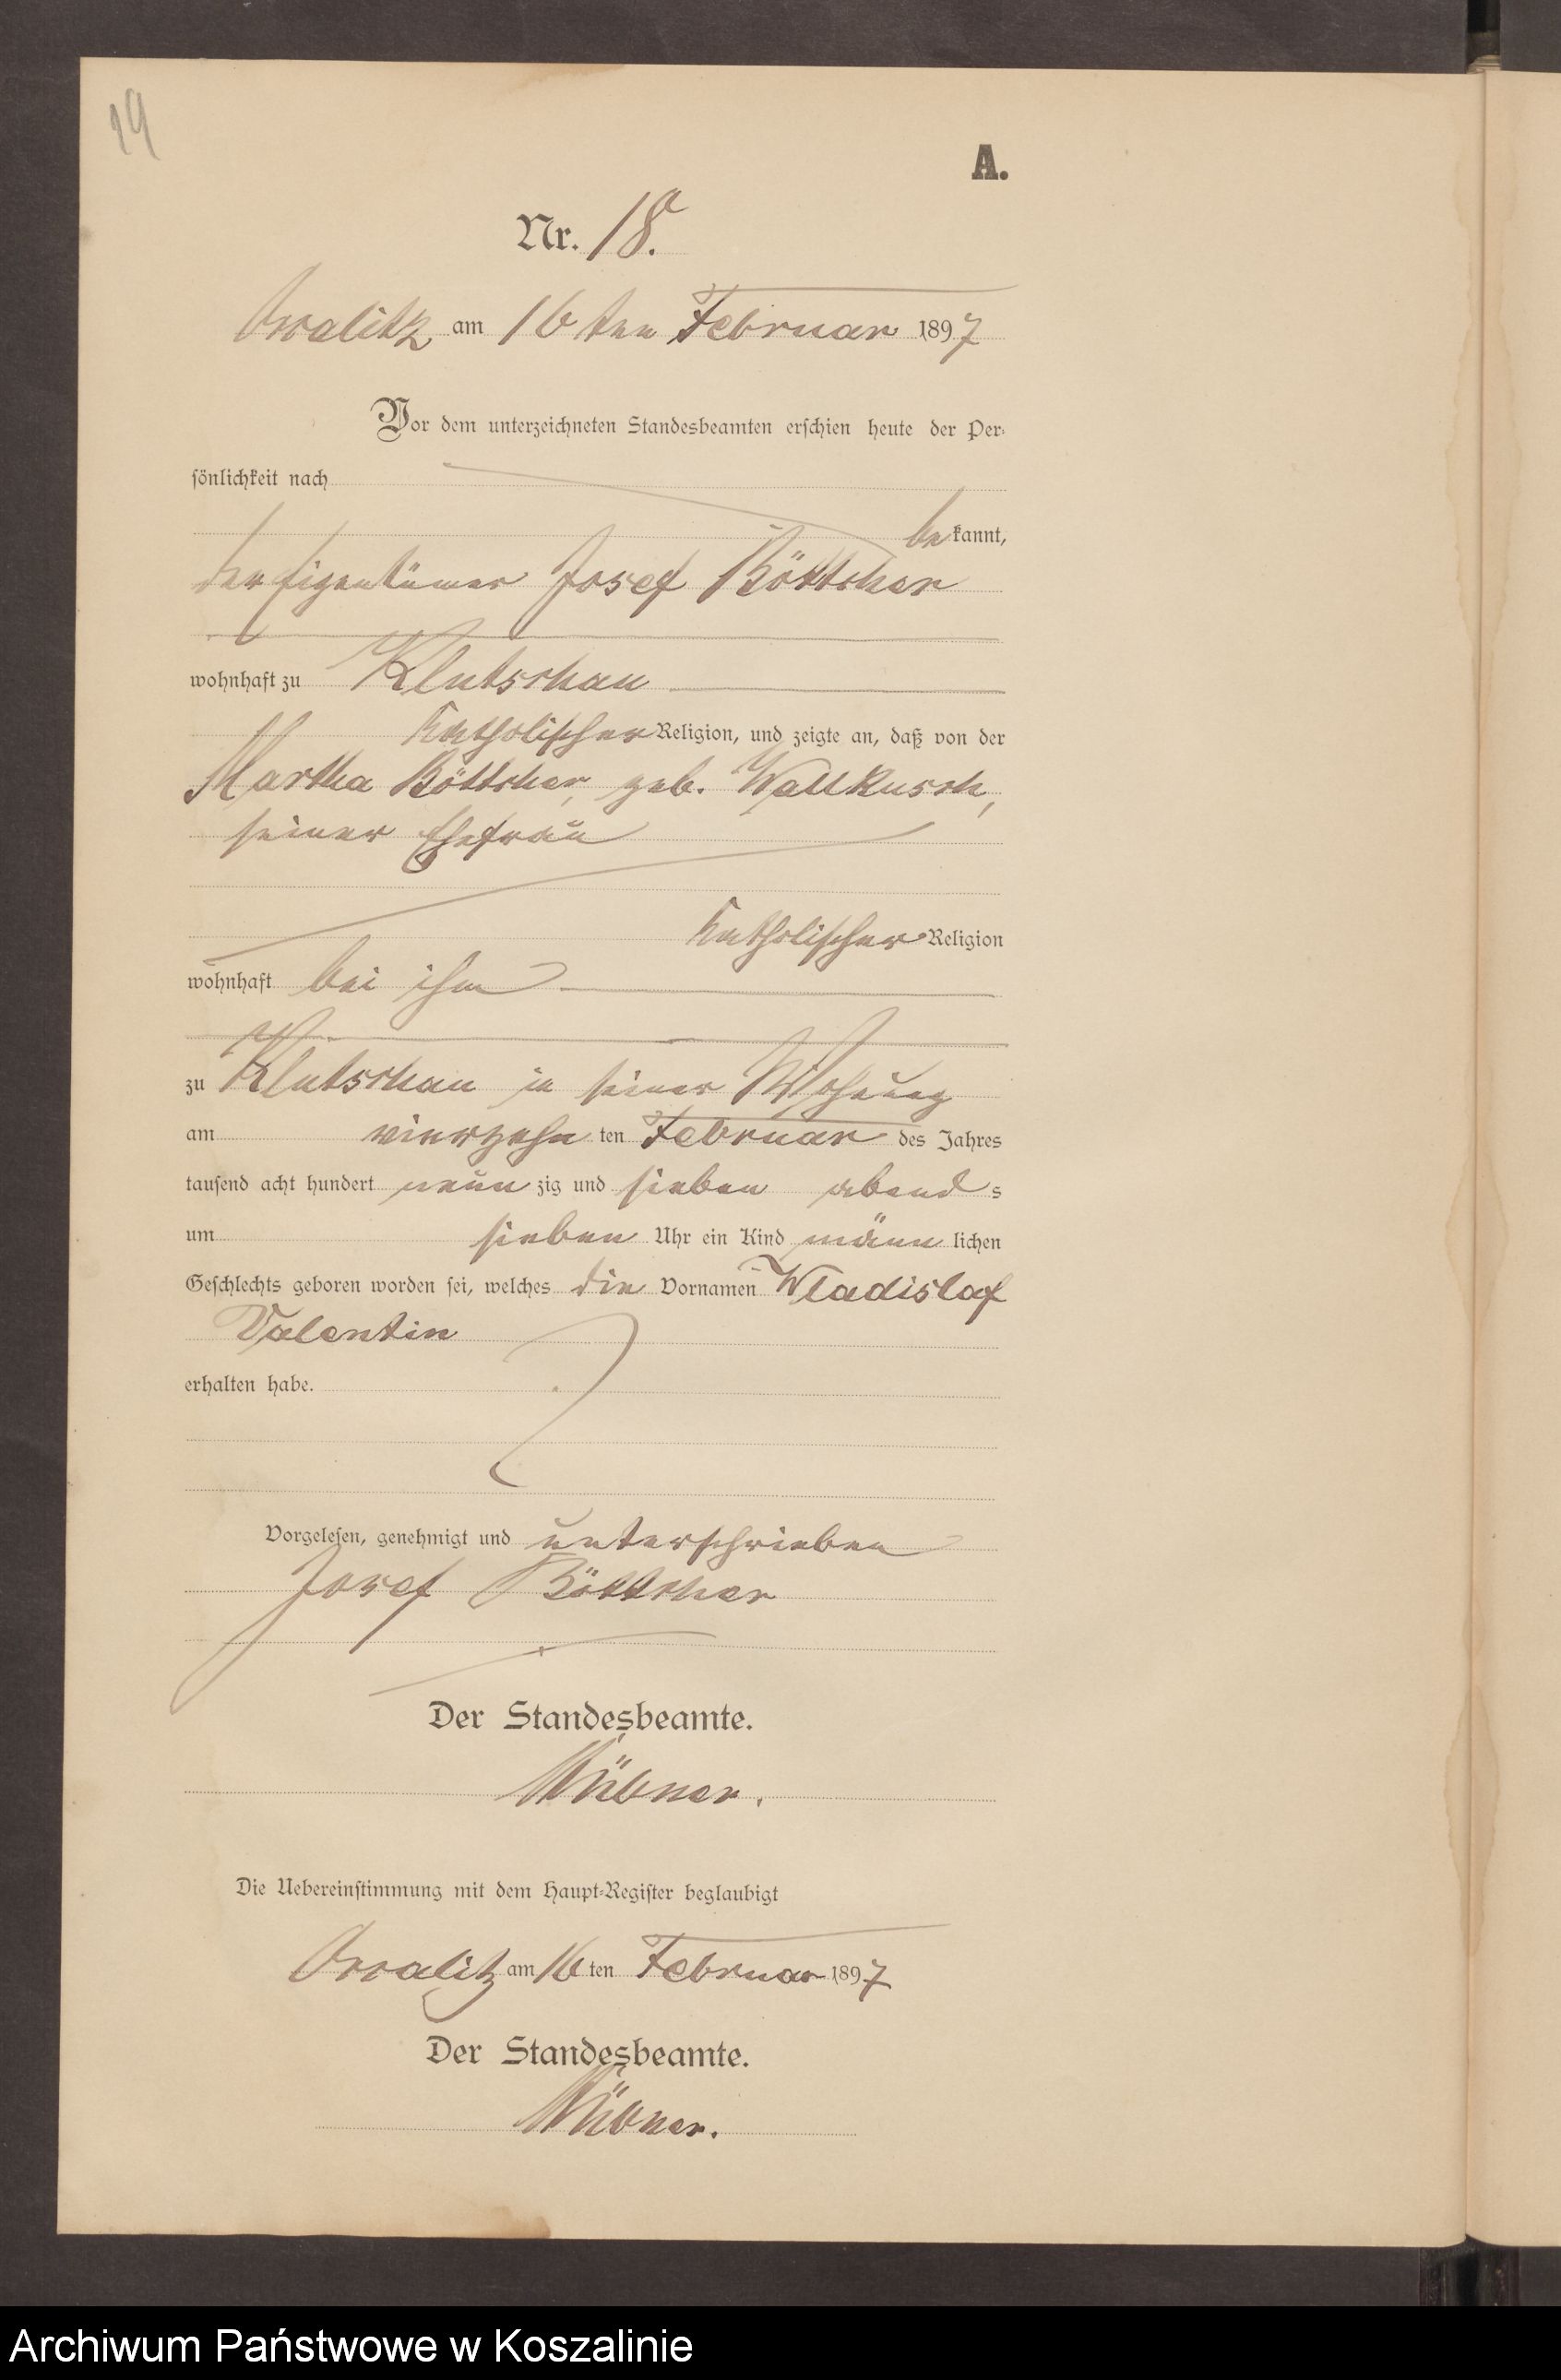 19
A.
Nr. 18.
Ossalitz am 16ten Februar 1897
Vor dem unterzeichneten Standesbeamten erschien heute der Per-
sönlichkeit nach
bekannt,
der Eigentümer Josef Böttcher
wohnhaft zu Klutschau
katholischer Religion, und zeigte an, daß von der
Martha Böttcher, geb. Wallkusch,
seiner Ehefrau
katholischer Religion
wohnhaft bei ihm
zu Klutschau in seiner Wohnung
am vierzehn ten Februar des Jahres
tausend acht hundert neun zig und sieben abend s
um sieben Uhr ein Kind männ lichen
Geschlechts geboren worden sei, welches die Vornamen Wladislaf
Valentin
erhalten habe.
Vorgelesen, genehmigt und unterschrieben
Josef Böttcher
Der Standesbeamte.
Die Uebereinstimmung mit dem Haupt-Register beglaubigt
Ossalitz am 16ten Februar 1897
Der Standesbeamte.
Archiwum Państwowe w Koszalinie